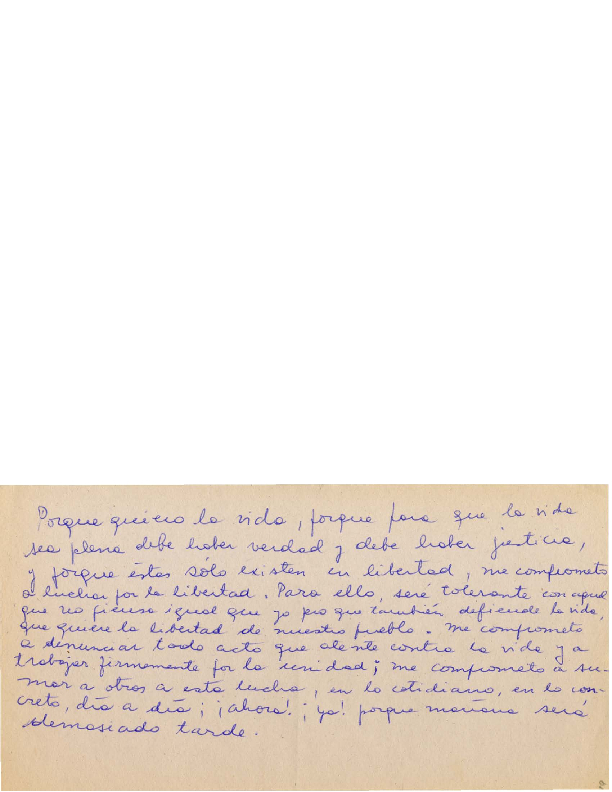 Porque quiero la vida, porque para que la vida
sea plena debe haber verdad y debe haber justicia,
y porque éstas sólo existen en libertad, me comprometo
a luchar por la libertad. Para ello, seré tolerante con aquel
que no piensa igual que yo pero que también defiende la vida,
que quiere la libertad de nuestro pueblo. Me comprometo
a denunciar todo acto que atente contra la vida y a
trabajar firmemente por la unidad; me comprometo a su-
mar a otros a esta lucha, en lo cotidiano, en lo con-
creto, día a día; ¡ahora! ¡ya! porque mañana será
demasiado tarde.